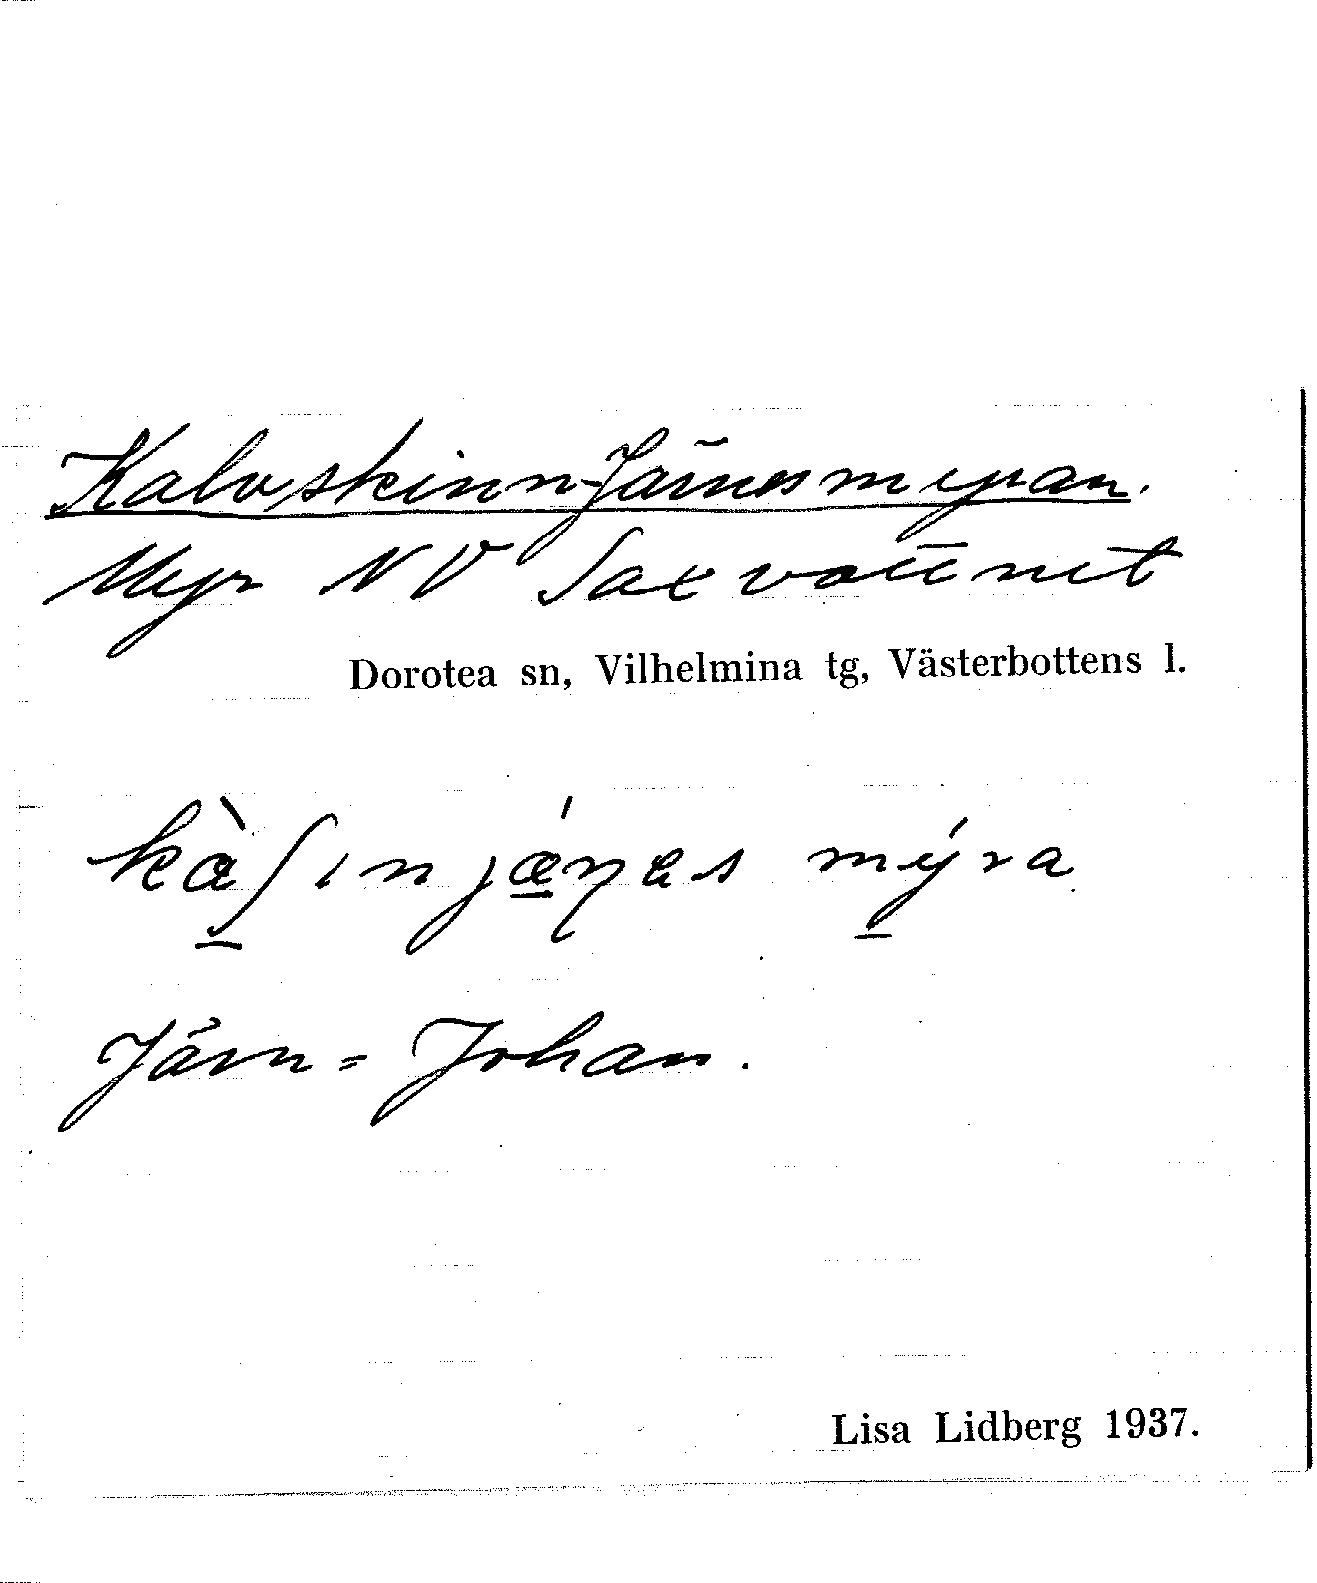 Kalvskinn-Järnesmyran.
Myr NV Saxvattnet
Dorotea sn, Vilhelmina tg, Västerbottens l.
kàʃın jǽɳas mýra
Järn = Johan.
Lisa Lidberg 1937.